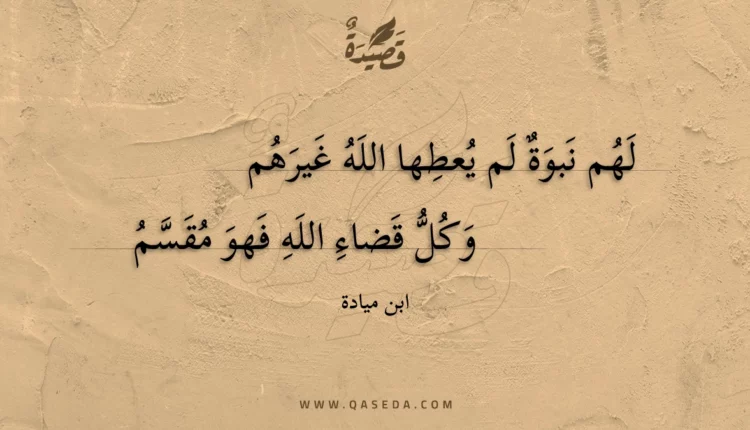 قَصِيدَةٌ
لَهُم نَبوَةٌ لَم يُعطِها اللَهُ غَيرَهُم
وَكُلُّ قَضاءِ اللَهِ فَهوَ مُقَسَّمُ
ابن ميادة
WWW.QASEDA.COM